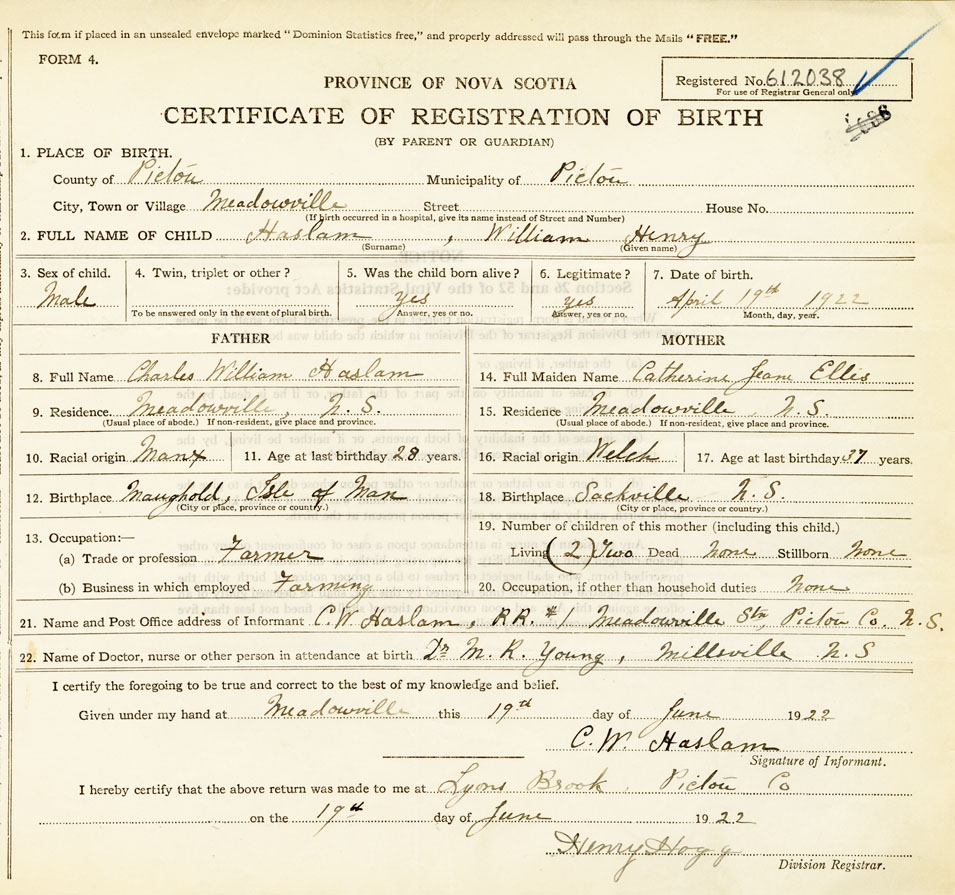 This form if placed in an unsealed envelope marked "Dominion Statistics free," and properly addressed will pass through the Mails "FREE."
FORM 4.
Registered No. 612038
For use of Registrar General only
PROVINCE OF NOVA SCOTIA
CERTIFICATE OF REGISTRATION OF BIRTH
(BY PARENT OR GUARDIAN)
1. PLACE OF BIRTH.
County of Pictou Municipality of Pictou
City, Town or Village Meadowville Street House No.
(If birth occurred in a hospital, give its name instead of Street and Number)
2. FULL NAME OF CHILD Haslam, William Henry
(Surname) (Given name)
3. Sex of child. 4. Twin, triplet or other? 5. Was the child born alive? 6. Legitimate? 7. Date of birth.
Male yes yes April 19th 1922
To be answered only in the event of plural birth. Answer, yes or no. Answer, yes or no. Month, day, year.
FATHER
8. Full Name Charles William Haslam
9. Residence. Meadowville, N.S.
(Usual place of abode.) If non-resident, give place and province.
10. Racial origin Manx 11. Age at last birthday 28 years.
12. Birthplace Maughold, Isle of Man
(City or place, province or country.)
13. Occupation:—
(a) Trade or profession Farmer
(b) Business in which employed Farming
MOTHER
14. Full Maiden Name Catherine Jean Ellis
15. Residence Meadowville, N.S.
(Usual place of abode.) If non-resident, give place and province.
16. Racial origin Welch 17. Age at last birthday 37 years.
18. Birthplace Sackville N.S.
(City or place, province or country.)
19. Number of children of this mother (including this child.)
Living (2) Two Dead None Stillborn None
20. Occupation, if other than household duties None
21. Name and Post Office address of Informant C.W. Haslam, RR. #1 Meadowville Stn, Pictou Co. N.S.
22. Name of Doctor, nurse or other person in attendance at birth Dr M. R. Young, Milleville N.S
I certify the foregoing to be true and correct to the best of my knowledge and belief.
Given under my hand at Meadowville this 19th day of June 1922
C.W. Haslam
Signature of Informant.
I hereby certify that the above return was made to me at Lyons Brook, Pictou Co
on the 19th day of June 1922
Henry Hogg
Division Registrar.